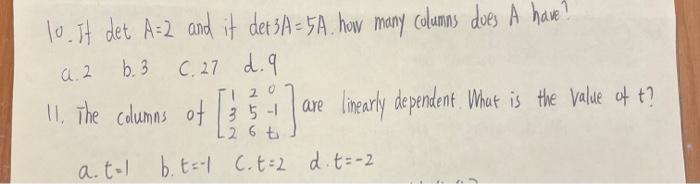 10. If det A=2 and if det 3A=5A. how many columns does A have?
a. 2 b. 3 C. 27 d. 9
11. The columns of [1 2 0
3 5 -1
2 6 t] are linearly dependent. What is the value of t?
a. t=1 b. t=-1 C. t=2 d. t=-2